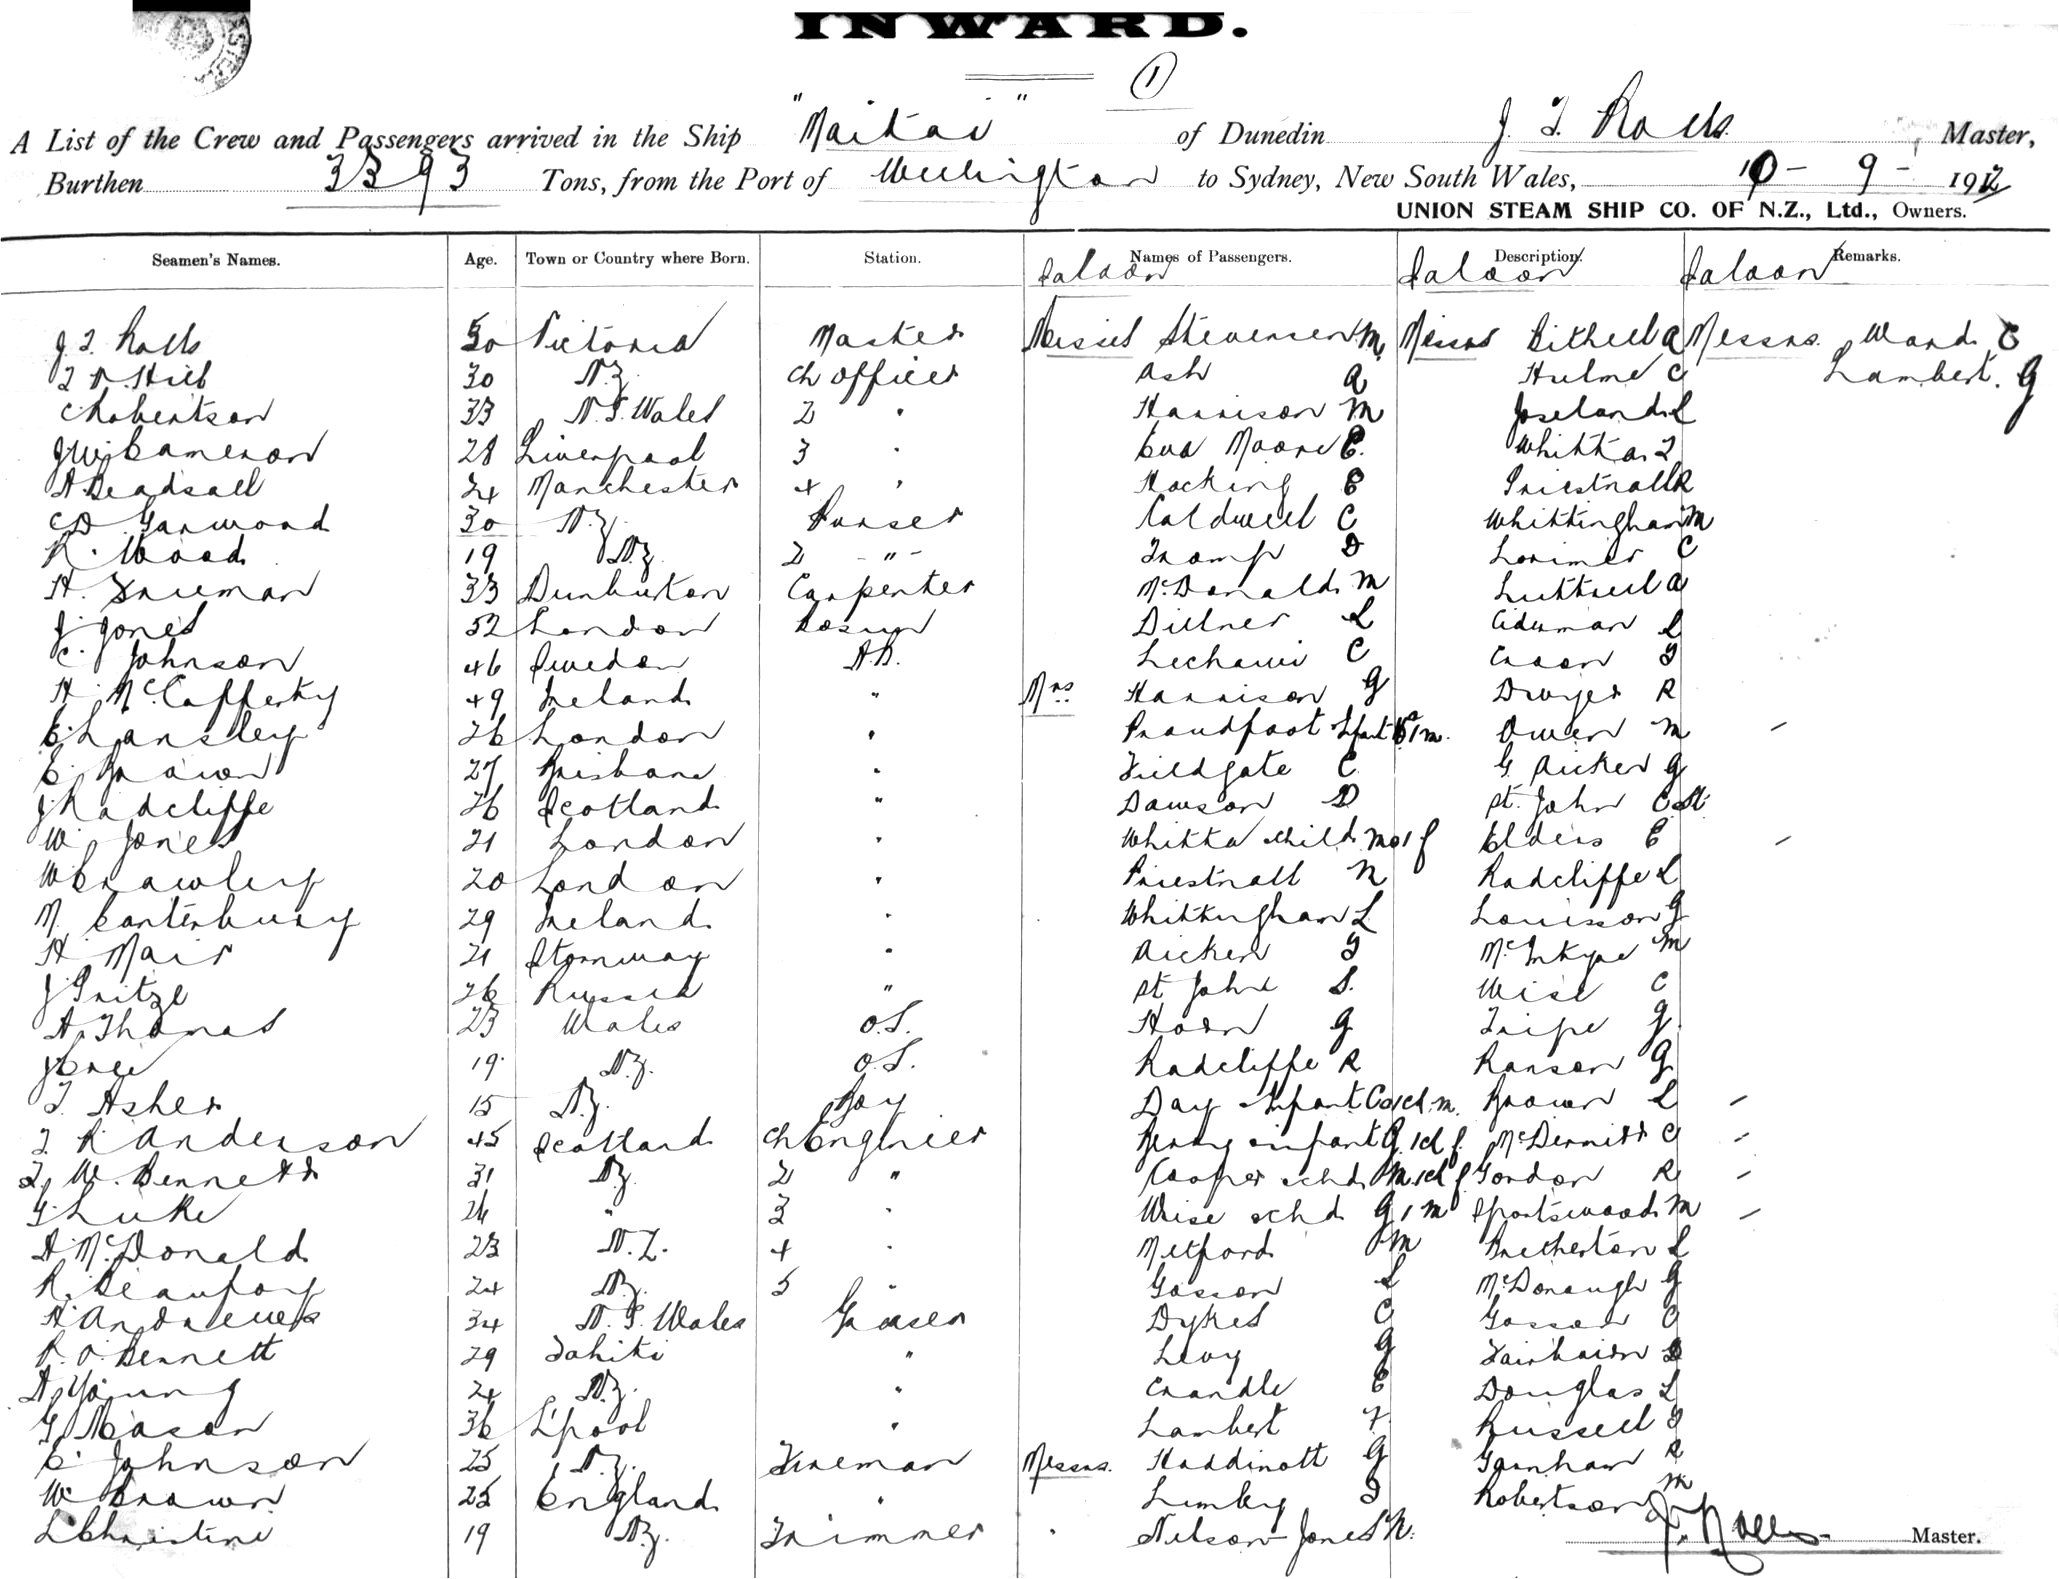 INWARD.
1
A List of the Crew and Passengers arrived in the Ship "Maitai" of Dunedin J. T. Rolls Master,
Burthen 3393 Tons, from the Port of Wellington to Sydney, New South Wales, 10 - 9 - 1912
UNION STEAM SHIP CO. OF N.Z., Ltd., Owners.
Seamen's Names. Age. Town or Country where Born. Station. Names of Passengers. Description. Remarks.
Saloon Saloon Saloon
J T. Rolls 50 Victoria Master Misses Stevenson M. Messrs Bithell A Messrs. Ward. C
30 N.Z. Ch Officer Ash A Hulme C Lambert. G
C Robertson 33 N.S. Wales 2 " Harrison M Joseland L
J W Cameron 28 Liverpool 3 " Eva Moore E. Whitta T
A Beadsall 24 Manchester 4 " Hocking E Priestnall R
C D Garwood 30 N.Z. Purser Caldwell C Whittingham M
R. Wood 19 N.Z. 2 -"- Tromp D Lorimer C
H. Freeman 33 Carpenter McDonald M Luttrell A
J. Jones 52 London Bosun Dillner L
C. Johnson 46 Sweden A.B. C T
H McCafferty 49 Ireland " Mrs Harrison G Dwyer R
E Lansley 26 London " Proudfoot Infant 1 m. Owen M -
E. Brown 27 Brisbane " Fieldgate C G. Aicken G
J Radcliffe 26 Scotland " Dawson D St. John C St.
W. Jones 21 London " Whitta child M 1 f Elders E -
W Crawley 20 London " Priestnall N Radcliffe L
M Canterbury 29 Ireland " Whittingham L Louisson G
H Mair 21 Stornway " Aicken T McIntyre M
J Fritze 26 Russia " St John S. Wise C
A. Thomas 23 Wales O.S. Horn G Tripe G
19 N.Z. O.S. Radcliffe R Ranson G
T. Asher 15 N.Z. Boy Day Infant C 1 ch. m. Brown L -
T. R Anderson 45 Scotland Ch Engineer infant 1 ch f. McDermitt C -
W. Bennett 31 N.Z. 2 " Cooper & chd M 1 ch f Gordon R -
G Luke 26 " 3 " Wise & chd G 1 m Spotswood M -
A. McDonald 23 N.Z. 4 " Metford M Bretherton L
R. Beaufoy 24 N.Z. 5 " Gosson L McDonough G
H Andrews 34 N.S. Wales Greaser Dykes C Gosson C
P. O. Bennett 29 Tahiti " Levy G Fairbairn D
A. Young 24 N.Z. " Crandle E Douglas L
G Mason 36 L'pool " Lambert F. Russell T
E. Johnson 25 N.Z. Fireman Messrs. Hoddinott G Garnham R
W Brown 25 England " Limley T Robertson M
L Christini 19 N.Z. Trimmer Nelson-Jones N.
J. T. Rolls Master.